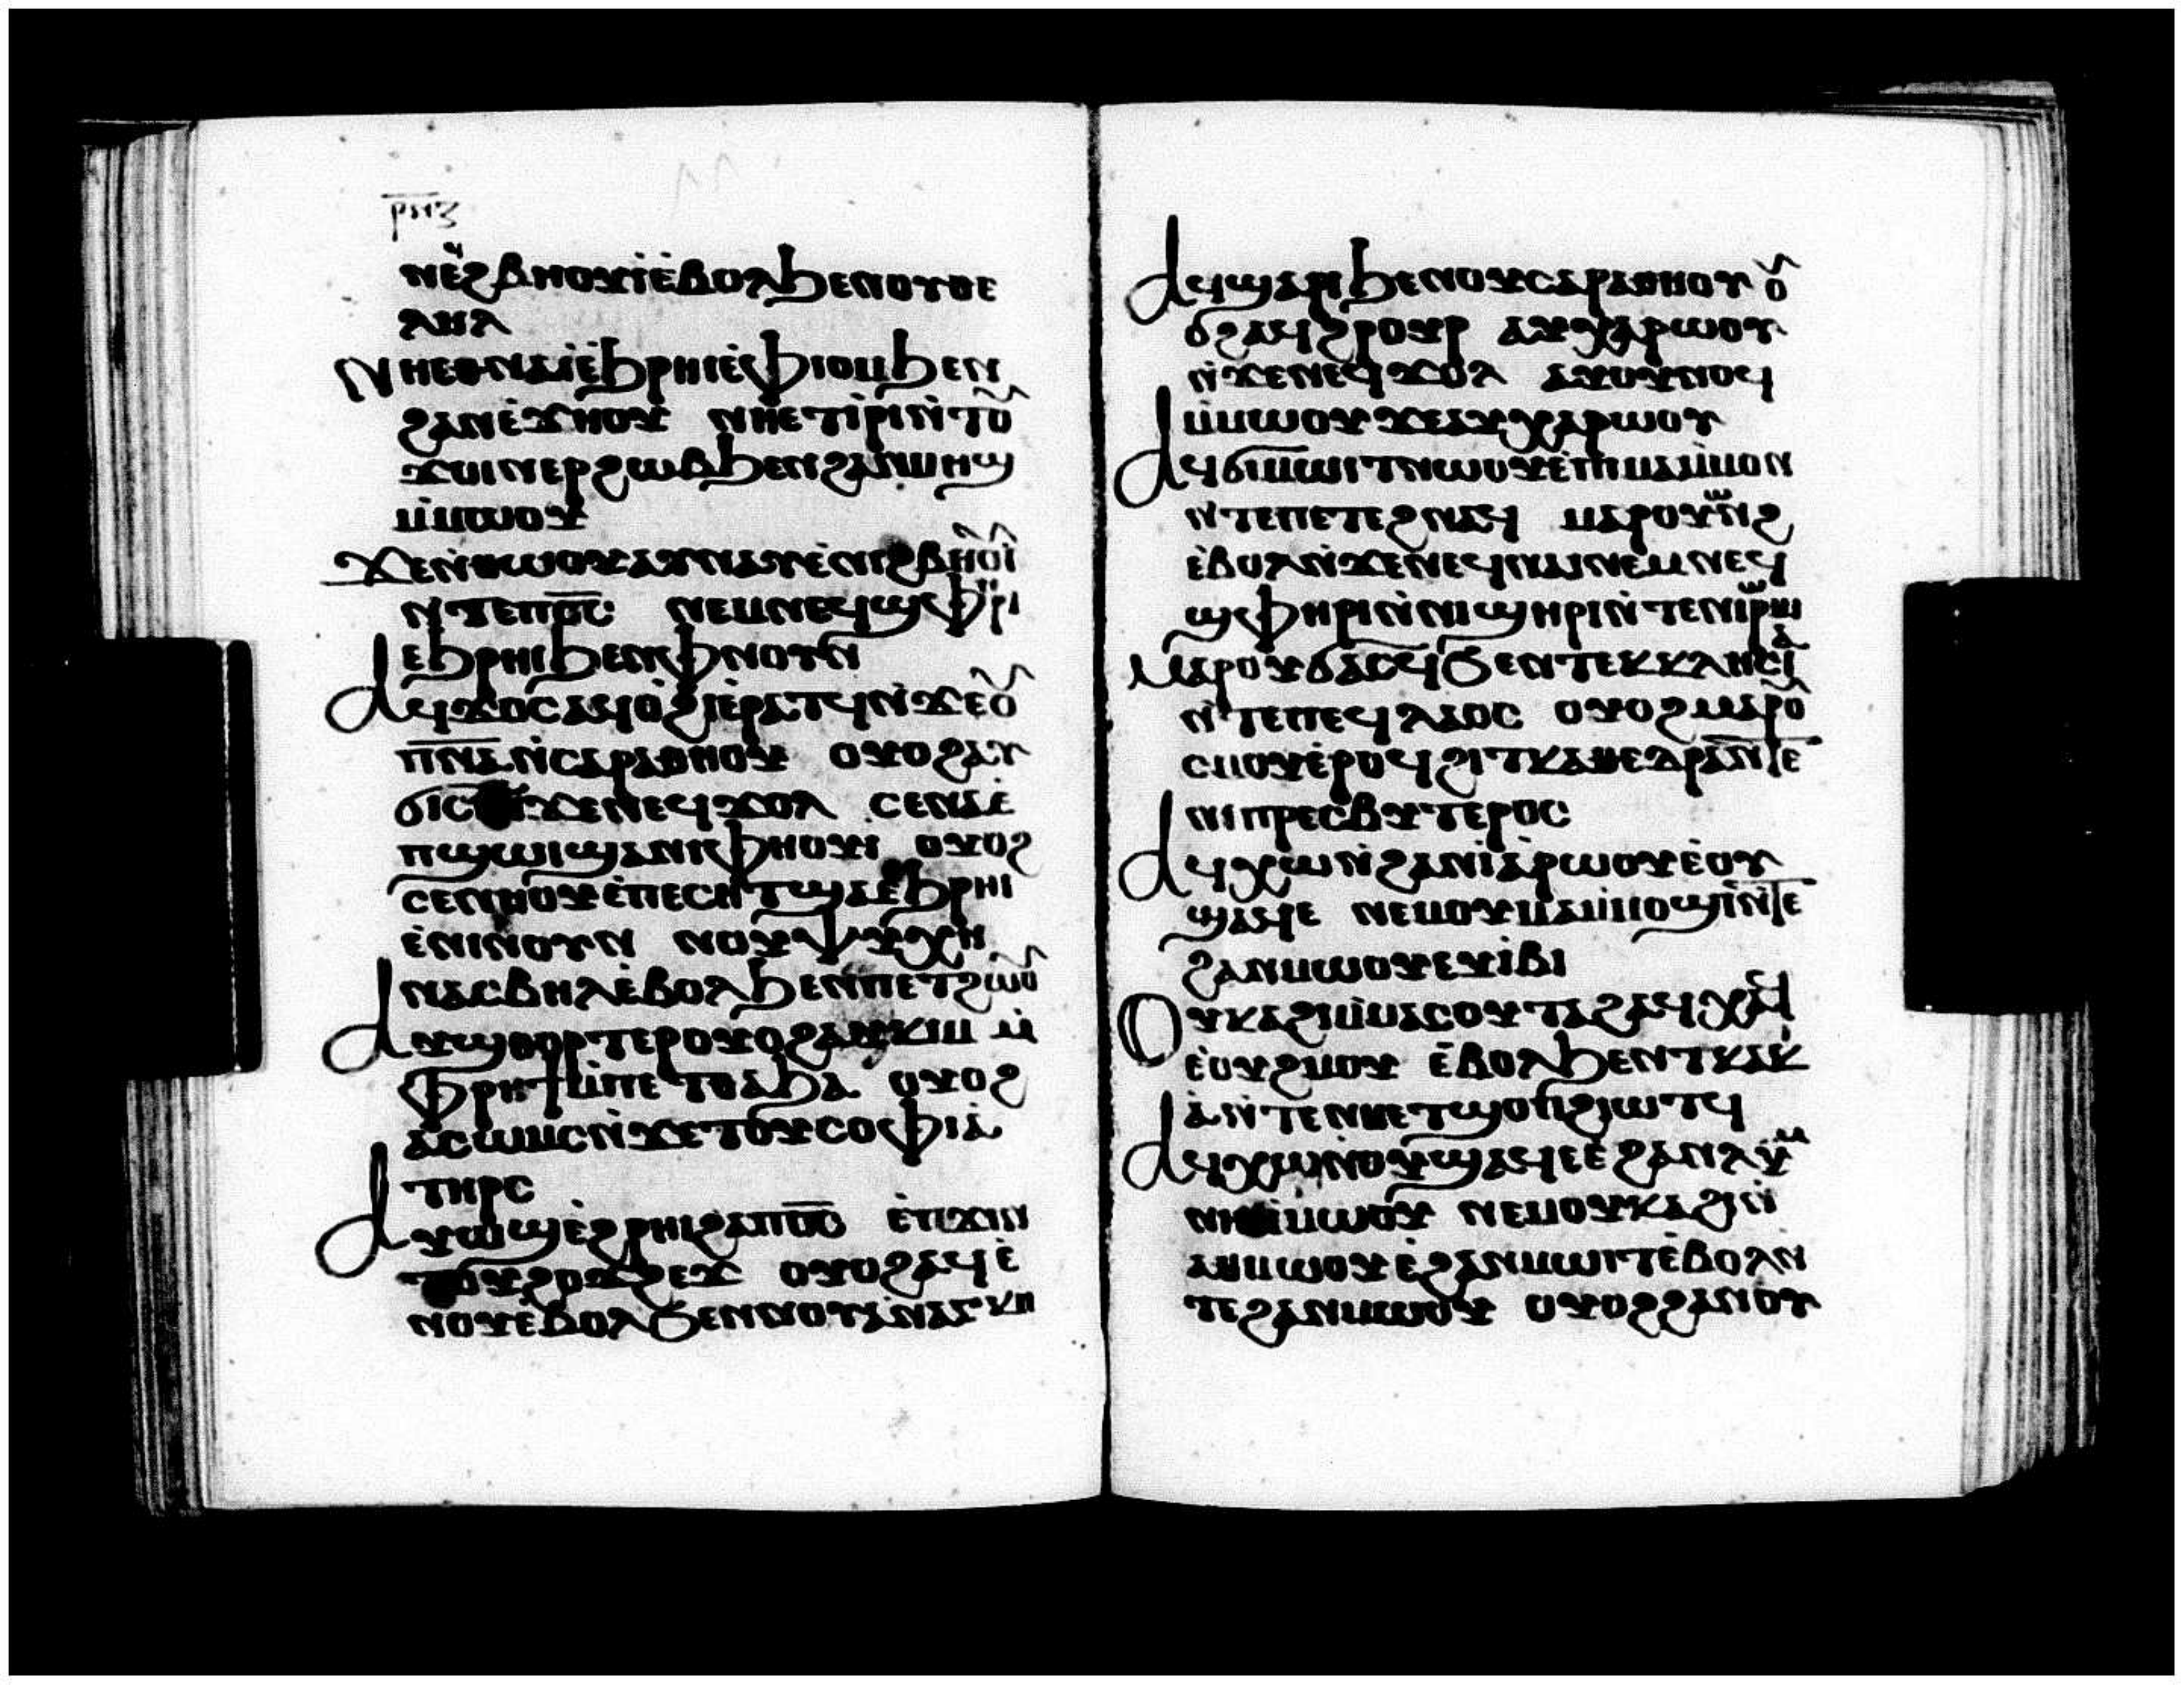 ⲣⲛⲍ
ⲛⲉϩⲃⲏⲟⲩⲓ ⲉⲃⲟⲗ ϧⲉⲛ ⲟⲩⲑⲉ
ⲗⲏⲗ
ⲛⲏⲉⲑⲛⲁⲓ ⲉϧⲣⲏⲓ ⲉⲫⲓⲟⲙ ϧⲉⲛ
ϩⲁⲛⲉϫⲏⲟⲩ ⲛⲏⲉⲧⲓⲣⲓ ⲛⲧⲟⲩ
ϫⲓⲛⲉⲣϩⲱⲃ ϧⲉⲛ ϩⲁⲛⲙⲏϣ
ⲙⲙⲱⲟⲩ
ϫⲉ ⲛⲑⲱⲟⲩ ⲁⲩⲛⲁⲩ ⲉⲛⲓϩⲃⲏⲟⲩⲓ
ⲛⲧⲉ ⲡϭⲥ ⲛⲉⲙ ⲛⲉϥϣⲫⲏⲣⲓ
ⲉϧⲣⲏⲓ ϧⲉⲛ ⲫⲛⲟⲩⲛ
ⲁϥϫⲟⲥ ⲁϥⲟϩⲓ ⲉⲣⲁⲧϥ ⲛϫⲉ ⲟⲩ
ⲡⲛⲁ ⲛⲥⲁⲣⲁⲑⲏⲟⲩ ⲟⲩⲟϩ ⲁⲩ
ϭⲓⲥⲓ ⲛϫⲉ ⲛⲉϥϫⲟⲗ ⲥⲉⲛⲁ ⲉ
ⲡϣⲱⲓ ϣⲁ ⲛⲓⲫⲏⲟⲩⲓ ⲟⲩⲟϩ
ⲥⲉⲛⲏⲟⲩ ⲉⲡⲉⲥⲏⲧ ϣⲁ ⲉϧⲣⲏⲓ
ⲉⲛⲓⲛⲟⲩⲛ ⲛⲟⲩⲯⲩⲭⲏ
ⲛⲁⲥⲃⲏⲗ ⲉⲃⲟⲗ ϧⲉⲛ ⲡⲉⲧϩⲱⲟⲩ
ⲁⲩϣⲑⲟⲣⲧⲉⲣ ⲟⲩⲟϩ ⲁⲩⲕⲓⲙ ⲙ
ⲫⲣⲏϯ ⲙⲡⲉⲧⲑⲁϧⲓ ⲟⲩⲟϩ
ⲁⲥⲱⲙⲥ ⲛϫⲉ ⲧⲟⲩⲥⲟⲫⲓⲁ
ⲧⲏⲣⲥ
ⲁⲩⲱϣ ⲉϩⲣⲏⲓ ϩⲁ ⲡϭⲥ ⲉⲡϫⲓⲛ
ⲧⲟⲩϩⲟϫϩⲉϫ ⲟⲩⲟϩ ⲁϥⲉ
ⲛⲟⲩ ⲉⲃⲟⲗ ϧⲉⲛ ⲛⲟⲩⲁⲛⲁⲅⲕⲏ
ⲁϥϣⲁϩⲓ ϧⲉⲛ ⲟⲩⲥⲁⲣⲁⲑⲏⲟⲩ ⲟⲩ
ⲟϩ ⲁϥϩⲣⲟⲩⲣ ⲁⲩⲭⲁⲣⲱⲟⲩ
ⲛϫⲉ ⲛⲉϥϫⲟⲗ ⲁⲩⲟⲩⲛⲟϥ
ⲙⲙⲱⲟⲩ ϫⲉ ⲁⲩⲭⲁⲣⲱⲟⲩ
ⲁϥϭⲓⲙⲱⲓⲧ ⲛⲱⲟⲩ ⲉⲡⲓⲙⲁⲙⲙⲟⲛⲓ
ⲛⲧⲉ ⲡⲉⲧⲉϩⲛⲁϥ ⲙⲁⲣⲟⲩⲱⲛϩ
ⲉⲃⲟⲗ ⲛϫⲉ ⲛⲉϥⲛⲁⲓ ⲛⲉⲙ ⲛⲉϥ
ϣⲫⲏⲣⲓ ⲛⲛⲓϣⲏⲣⲓ ⲛⲧⲉ ⲛⲓⲣⲱⲙⲓ
ⲙⲁⲣⲟⲩϭⲁⲥϥ ϧⲉⲛ ⲧⲉⲕⲕⲗⲏⲥⲓⲁ
ⲛⲧⲉ ⲡⲉϥⲗⲁⲟⲥ ⲟⲩⲟϩ ⲙⲁⲣⲟⲩ
ⲥⲙⲟⲩ ⲉⲣⲟϥ ϩⲓ ⲧⲕⲁⲑⲉⲇⲣⲁ ⲛⲧⲉ
ⲛⲓⲡⲣⲉⲥⲃⲩⲧⲉⲣⲟⲥ
ⲁϥⲭⲱ ⲛϩⲁⲛⲓⲁⲣⲱⲟⲩ ⲉⲟⲩ
ϣⲁϥⲉ ⲛⲉⲙ ⲟⲩⲙⲁⲙⲙⲟϣⲓ ⲛⲧⲉ
ϩⲁⲛⲙⲱⲟⲩ ⲉⲩⲓⲃⲓ
ⲟⲩⲕⲁϩⲓ ⲙⲙⲁⲥⲟⲩⲧⲁϩ ⲁϥⲭⲁϥ
ⲉⲟⲩϩⲙⲟⲩ ⲉⲃⲟⲗ ϧⲉⲛ ⲧⲕⲁⲕⲓ
ⲁ ⲛⲧⲉ ⲛⲏⲉⲧϣⲟⲡ ϩⲓⲱⲧϥ
ⲁϥⲭⲱ ⲛⲟⲩϣⲁϥⲉ ⲉϩⲁⲛⲗⲩⲙ
ⲛⲏ ⲙⲙⲱⲟⲩ ⲛⲉⲙ ⲟⲩⲕⲁϩⲓ ⲛ
ⲁⲑⲙⲱⲟⲩ ⲉϩⲁⲛⲙⲱⲓⲧ ⲉⲃⲟⲗ ⲛ
ⲧⲉ ϩⲁⲛⲙⲱⲟⲩ ⲟⲩⲟϩ ϩⲁⲛⲟⲩ